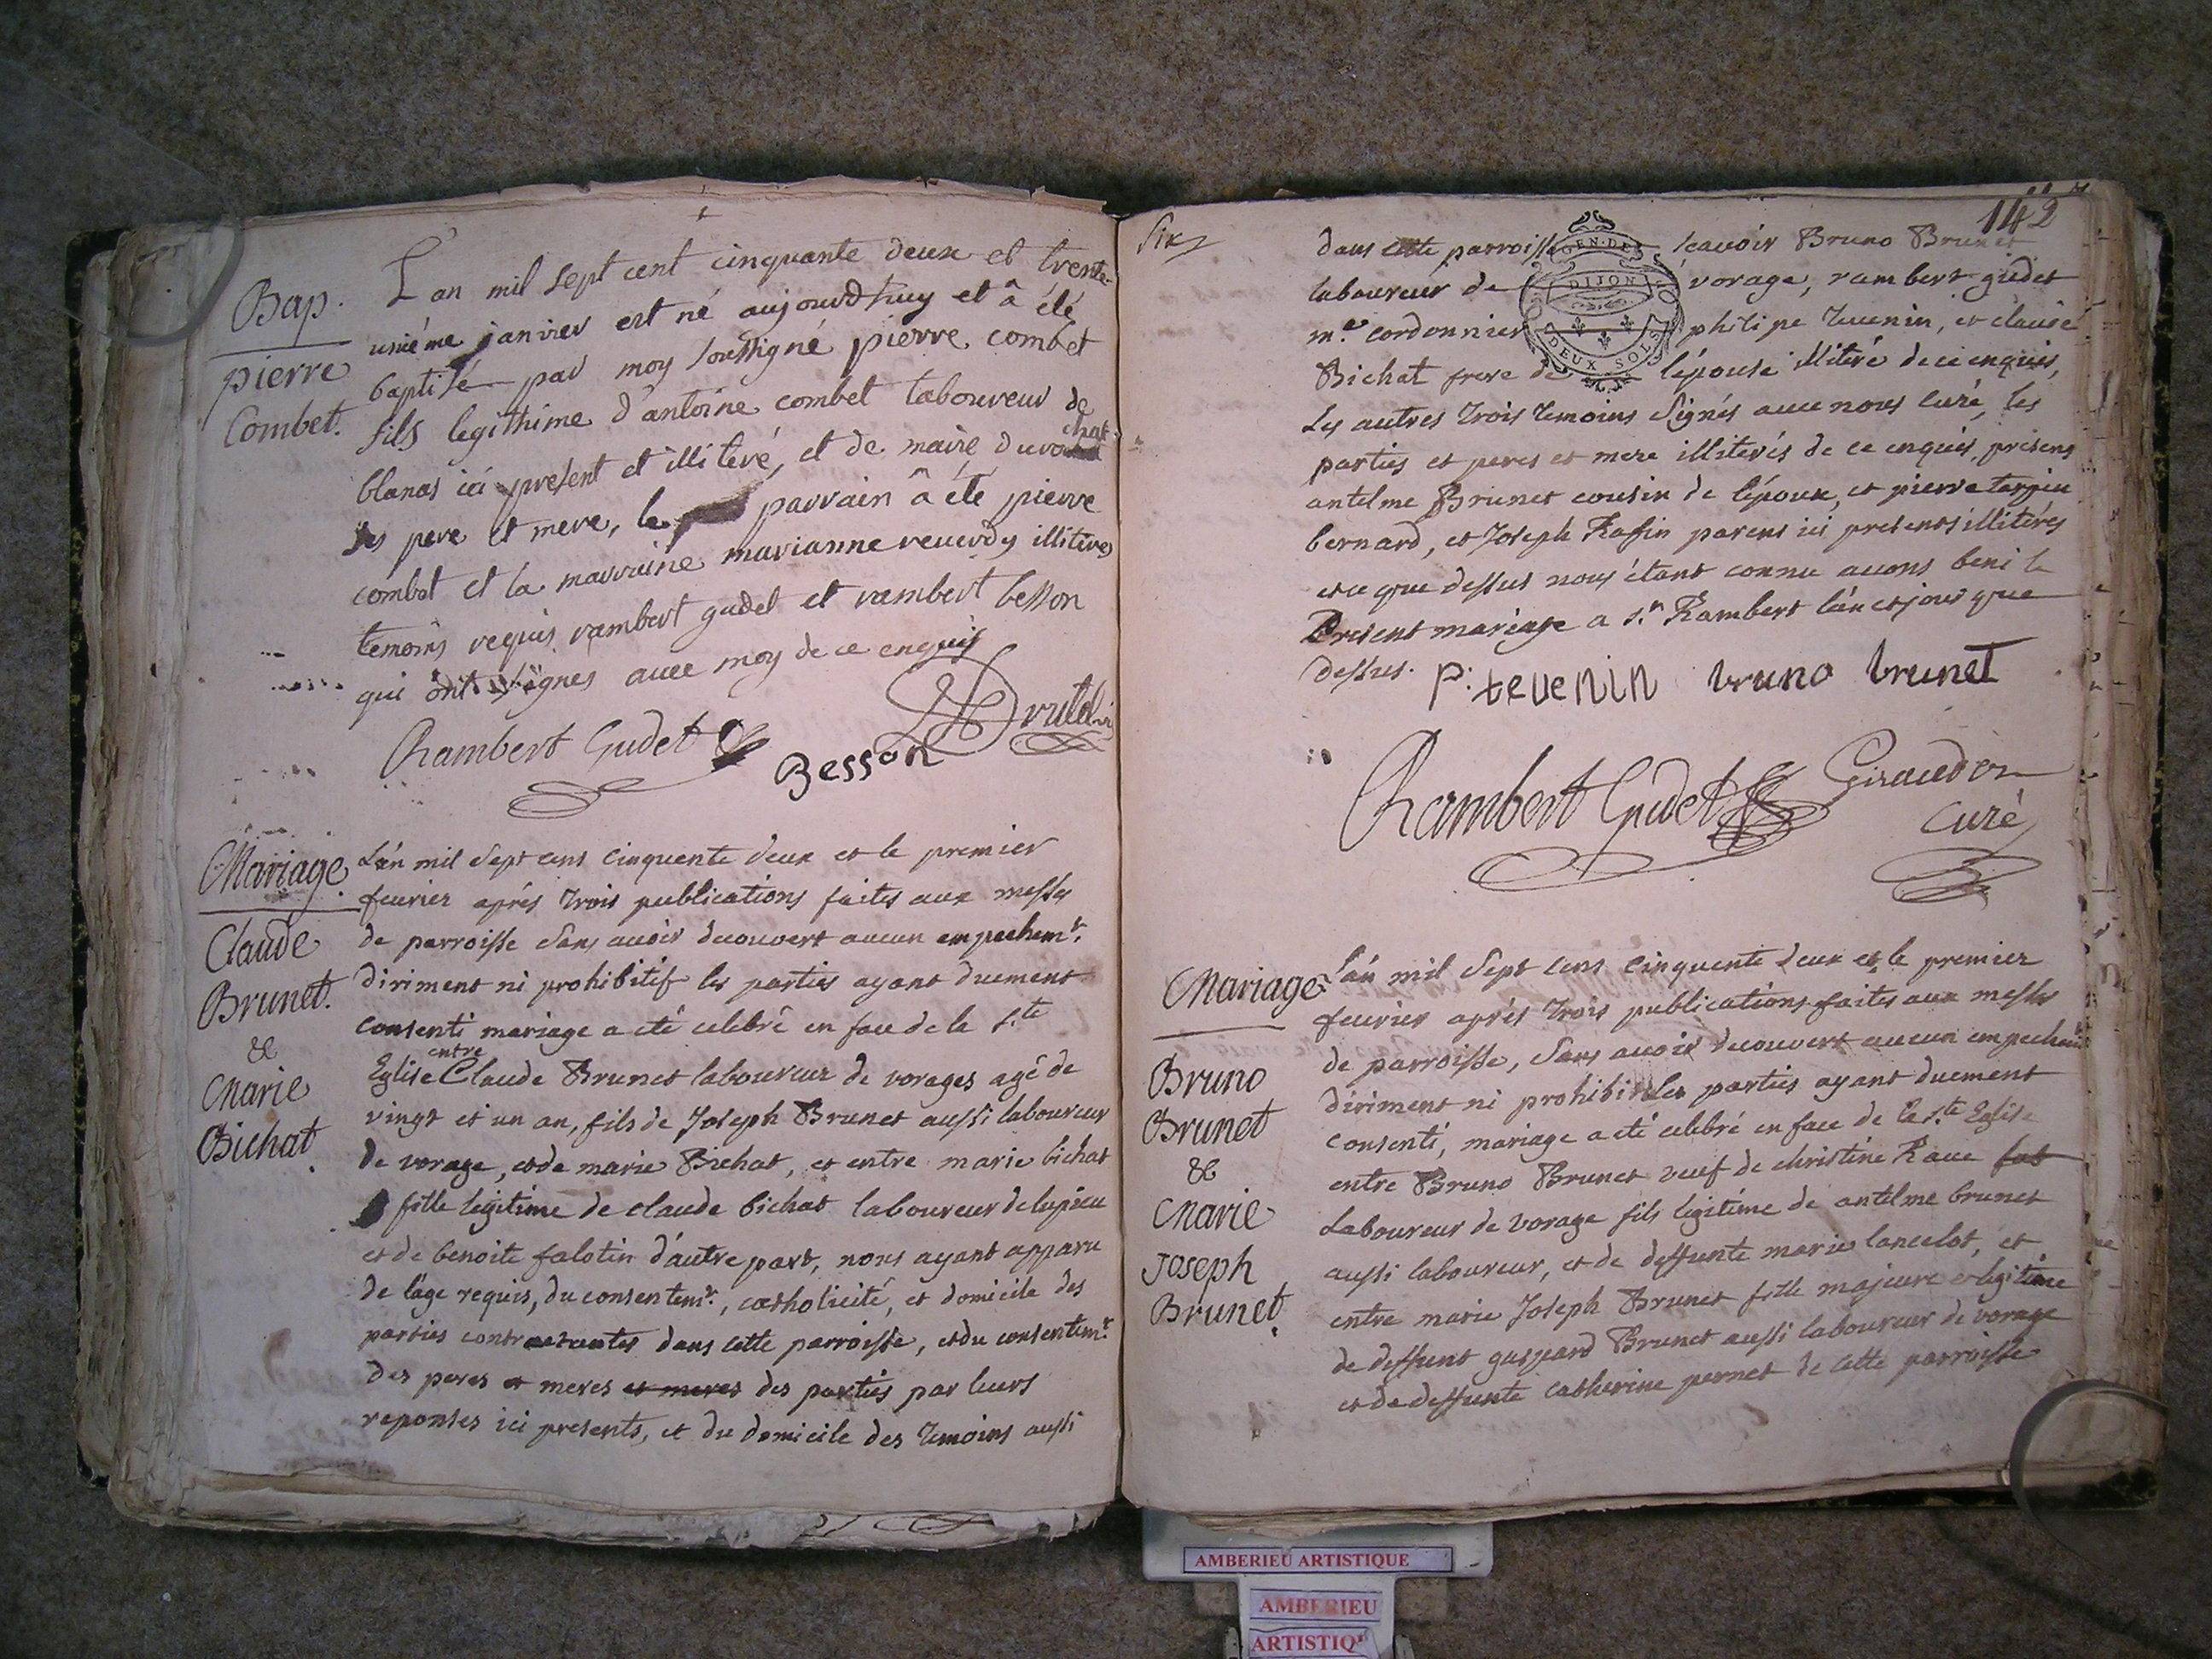 Bap.
pierre
Combet.
L'an mil sept cent cinquante deux et trente
uniéme janvier est né aujourdhuy et â été
baptisé par moy soussigné pierre combet
fils legithime d'antoine combet laboureur de
blanas ici present et illiteré, et de marie duvo chat
ses pere et mere, le parrain â été pierre
combet et la marraine marianne reverdy illiteres
temoins requis rambert gudet et rambert besson
qui ont signes avec moy de ce enquis
Rambert Gudet Besson
Mariage
Claude
Brunet.
&
Marie
Bichat.
L'an mil Sept cens Cinquente deux et le premier
fevrier aprés trois publications faites aux messes
de parroisse Sans avoir decouvert aucun empechemt.
diriment ni prohibitif les parties ayant duement
consenti mariage a eté celebré en face de la Ste
Eglise entre Claude Brunet laboureur de vorages agé de
vingt et un an, fils de Joseph Brunet aussi laboureur
de vorage, et de marie Bichat, et entre marie bichat
fille legitime de claude bichat laboureur de lupieu
et de benoite falotin d'autre part, nous ayant apparu
de l'age requis, du consentemt., catholicité, et domicile des
parties contractantes dans cette parroisse, et du consentemt.
des peres et meres et meres des parties par leurs
reponses ici presents, et du domicile des temoins aussi
Six
142
dans cette parroisse scavoir Bruno Brunet
laboureur de vorage, rambert gudet
me. cordonnier philipe tevenin, et claude
Bichat frere de l'epouse illiteré de ce enquis,
Les autres trois temoins Signés avec nous curé, les
parties et peres et mere illiterés de ce enquis, presens
antelme Brunet cousin de l'époux, et pierre
bernard, et Joseph Raffin parens ici presents illiterés
et ce que dessus nous étant connu avons beni le
Present mariage a St. Rambert l'an et jour que
dessus.
GEN·DE
DIJON
DEUX·SOLS
P. tevenin bruno brunet
Rambert Gudet Giraudon
curé
Mariage
Bruno
Brunet
&
Marie
Joseph
Brunet.
L'an mil Sept cens cinquente deux et le premier
fevrier aprés trois publications faites aux messes
de parroisse, Sans avoir decouvert aucun empechemt
diriment ni les parties ayant duement
consenti, mariage a eté celebré en face de la Ste Eglise
entre Bruno Brunet veuf de christine Rave
Laboureur de vorage fils legitime de antelme brunet
aussi laboureur, et de deffunte marie lancelot, et
entre marie Joseph Brunet fille majeure et legitime
de deffunt gaspard Brunet aussi laboureur de vorage
et de deffunte catherine pernet de cette parroisse
AMBERIEU ARTISTIQUE
AMBERIEU
ARTISTIQ